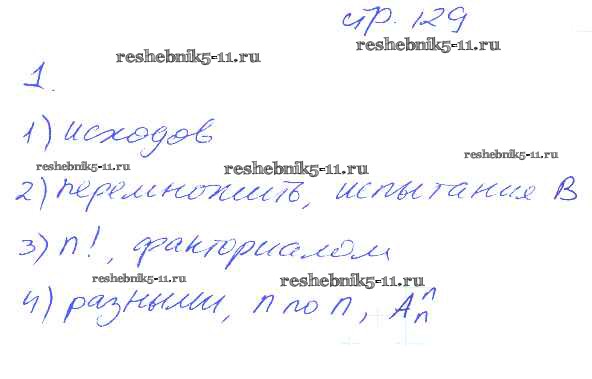 стр. 129
reshebnik5-11.ru
reshebnik5-11.ru
1.
1) исходов
reshebnik5-11.ru
reshebnik5-11.ru
reshebnik5-11.ru
2) перемножить, испытания В
3) n!, факториалом
reshebnik5-11.ru
reshebnik5-11.ru
4) разными, n по n, Aₙⁿ